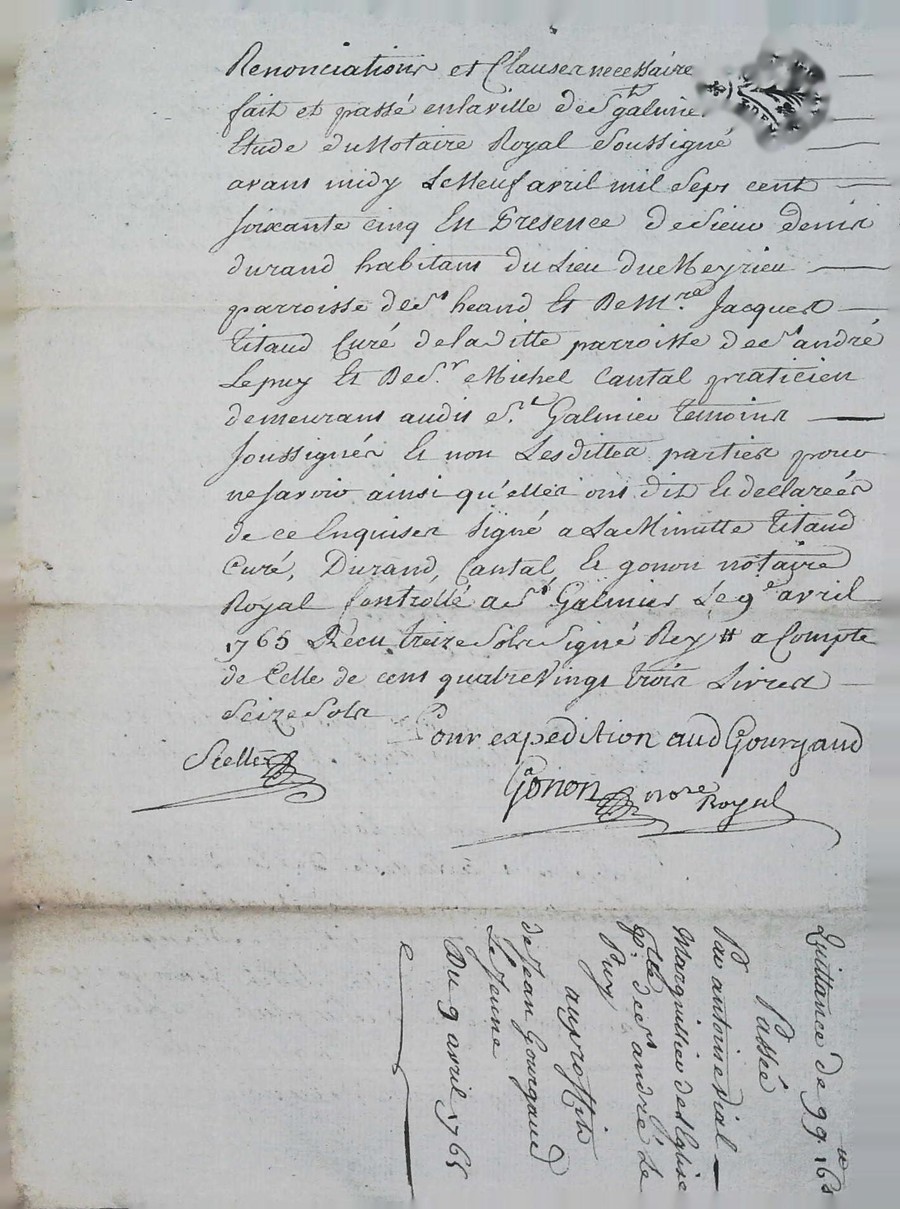 Renonciations et Clauses necessaire
fait et passé en la ville de St galmie
Etude du Notaire Royal Soussigné
avant midy Le Neuf avril mil Sept cent
soixante cinq En Presence de Sieur denis
durand habitant du Lieu du Meyrieu
parroisse de St heand Et De Mre. Jacques
titaud Curé de la ditte parroisse de St andré
Le puy Et De Sr. Michel Cantal praticien
demeurant audit St. Galmier temoins
soussignés Et non Lesdittes parties pour
ne savoir ainsi qu'elles ont dit Et declarées
de ce Enquises signé a La Minutte titaud
Curé, Durand, Cantal Et gonon notaire
Royal Controllé a St Galmier Le 9e avril
1765 Recu treize Sols Signé Rey # a Compte
de Celle de cent quatre Vingt trois Livres
Seize Sols
Pour expedition aud Gourgaud
Scellé
Gonon nore Royal
Quittance de 99tt 16s
Passée
Par antoine Vial
Marguillier de l'Eglise
de St andré Le
Puy
au proffit
de Jean Gourgaud
Le Jeune
Du 9 avril 1765